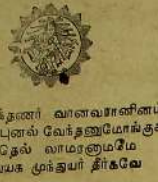 ந்தணர் வானவரானினம்
புனல் வேந்தனுமோங்குக
தெல் லாமரனாமமே
யக முந்துயர் தீர்கவே